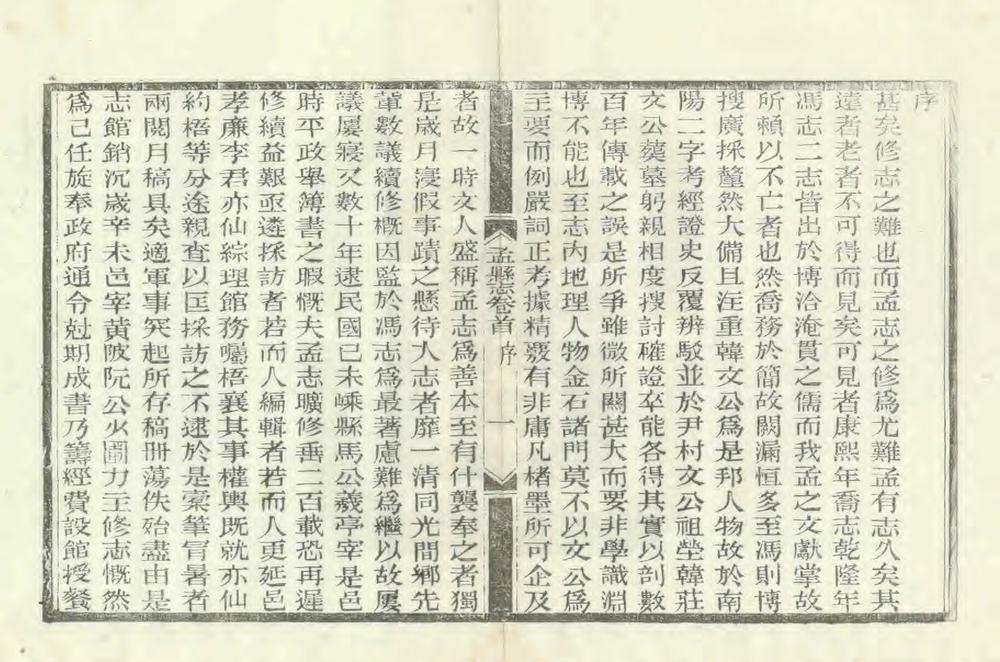 序
甚矣修志之難也而孟志之修爲尤難孟有志久矣其
遠者老者不可得而見矣可見者康熙年喬志乾隆年
馮志二志皆出於博洽淹貫之儒而我孟之文獻掌故
所賴以不亡者也然喬務於簡故闕漏恒多至馮則博
搜廣採釐然大備且注重韓文公爲是邦人物故於南
陽二字考經證史反覆辨駁並於尹村文公祖塋韓莊
文公葬墓躬親相度搜討確證卒能各得其實以剖數
百年傳載之誤是所爭雖微所關甚大而要非學識淵
博不能也至志內地理人物金石諸門莫不以文公爲
主要而例嚴詞正考據精覈有非庸凡楮墨所可企及
孟縣志卷首 序 一
者故一時文人盛稱孟志爲善本至有什襲奉之者獨
是歲月寖假事蹟之懸待人志者靡一清同光間鄉先
輩數議續修概因監於馮志爲最著慮難爲繼以故屢
議屢寢又數十年逮民國己未嵊縣馬公羲亭宰是邑
時平政舉簿書之暇慨夫孟志曠修垂二百載恐再遲
修續益艱亟遴採訪者若而人編輯者若而人更延邑
孝廉李君亦仙綜理館務囑梧襄其事權輿既就亦仙
約梧等分途親查以匡採訪之不逮於是橐筆冒暑者
兩閱月稿具矣適軍事突起所存稿冊蕩佚殆盡由是
志館銷沉歲辛未邑宰黃陂阮公少圃力主修志慨然
爲己任旋奉政府通令尅期成書乃籌經費設館授餐